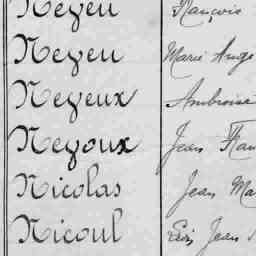 Neyeu François
Neyeu Marie Ange
Neyeux Ambroise
Negoux Jean Fran
Nicolas Jean Ma
Nicoul Jean